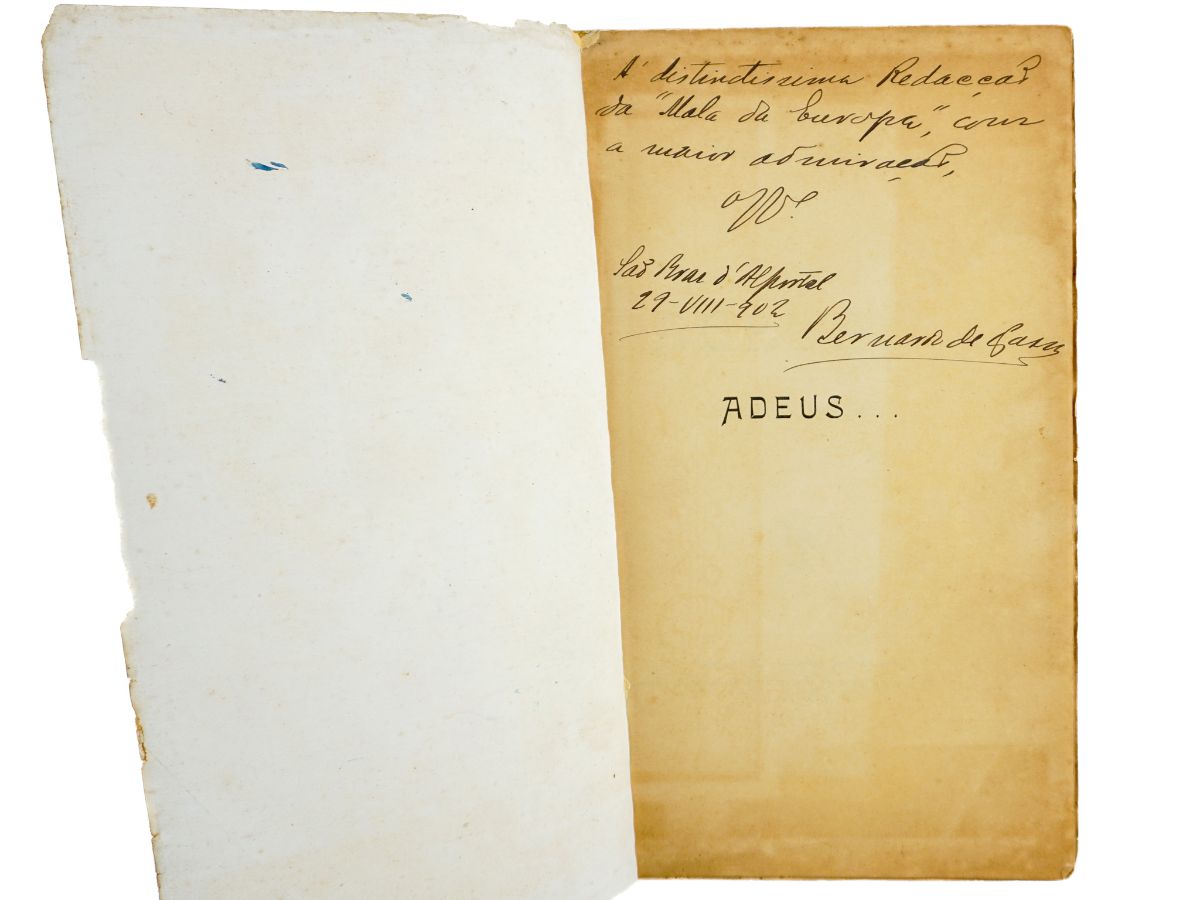 Á distinctissima Redacção
da "Mala da Europa", com
a maior admiração,
off.e
São Braz d'Alportel
29-VIII-902
Bernardo de Passos
ADEUS...